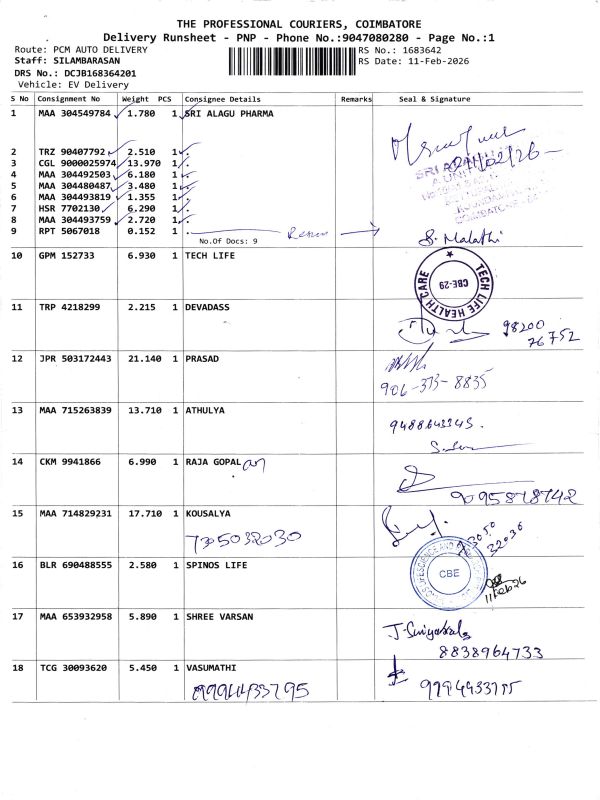 THE PROFESSIONAL COURIERS, COIMBATORE
Delivery Runsheet - PNP - Phone No.:9047080280 - Page No.:1
Route: PCM AUTO DELIVERY
RS No.: 1683642
Staff: SILAMBARASAN
RS Date: 11-Feb-2026
DRS No.: DCJB168364201
Vehicle: EV Delivery
S No Consignment No Weight PCS Consignee Details Remarks Seal & Signature
1 MAA 304549784 1.780 1 SRI ALAGU PHARMA
2 TRZ 90407792 2.510 1 .
3 CGL 9000025974 13.970 1 .
4 MAA 304492503 6.180 1 .
5 MAA 304480487 3.480 1 .
6 MAA 304493819 1.355 1 .
7 HSR 7702130 6.290 1 .
8 MAA 304493759 2.720 1 .
9 RPT 5067018 0.152 1 .
No.Of Docs: 9
S. Malathi
10 GPM 152733 6.930 1 TECH LIFE
TECH LIFE HEALTH CARE
CBE-29
11 TRP 4218299 2.215 1 DEVADASS
98200
76752
12 JPR 503172443 21.140 1 PRASAD
906-373-8835
13 MAA 715263839 13.710 1 ATHULYA
14 CKM 9941866 6.990 1 RAJA GOPAL an
9095878742
15 MAA 714829231 17.710 1 KOUSALYA
7305032030
16 BLR 690488555 2.580 1 SPINOS LIFE
CBE
11 Feb 26
17 MAA 653932958 5.890 1 SHREE VARSAN
8838964733
18 TCG 30093620 5.450 1 VASUMATHI